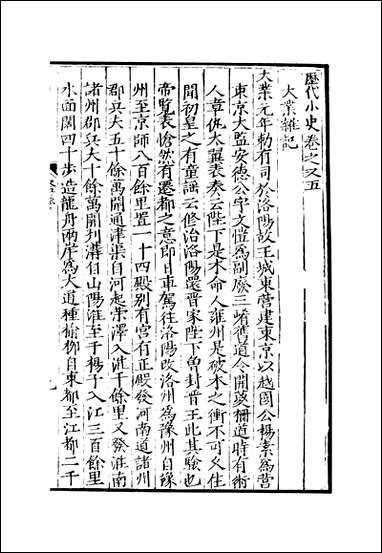 歷代小史卷之又五
大業雜記
大業元年勅有司於洛陽故王城東營建東京以越國公楊素為營
東京大監安德公宇文愷為副廢三崤舊道令開葼柵道時有術
人章仇太翼表奏云陛下是木命人雍州是破木之衝不可久住
聞初皇之有童謡云修治洛陽還晋家陛下曽封晋王此其驗也
帝覽表愴然有遷都之意即日車駕往洛陽改洛州為豫州自豫
州至京師八百餘里置一十四殿別有宮有正殿發河南道諸州
郡兵夫五十餘萬開通津渠自河起滎澤入淮千餘里又發淮南
諸州郡兵夫十餘萬開刋溝自山陽淮至于楊子入江三百餘里
水面闊四十步造龍舟兩岸為大道種榆柳自東都至江都二千